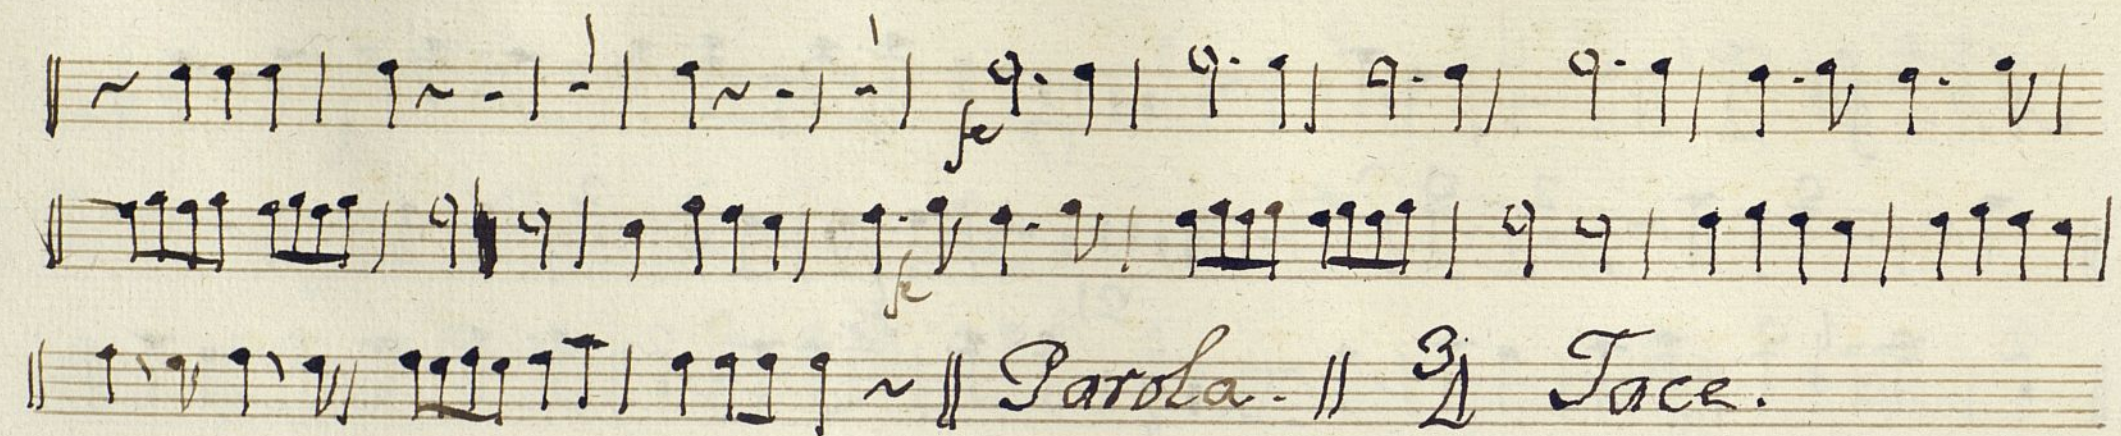 1 1
fe
fe
Parola. 3/4 Tace.